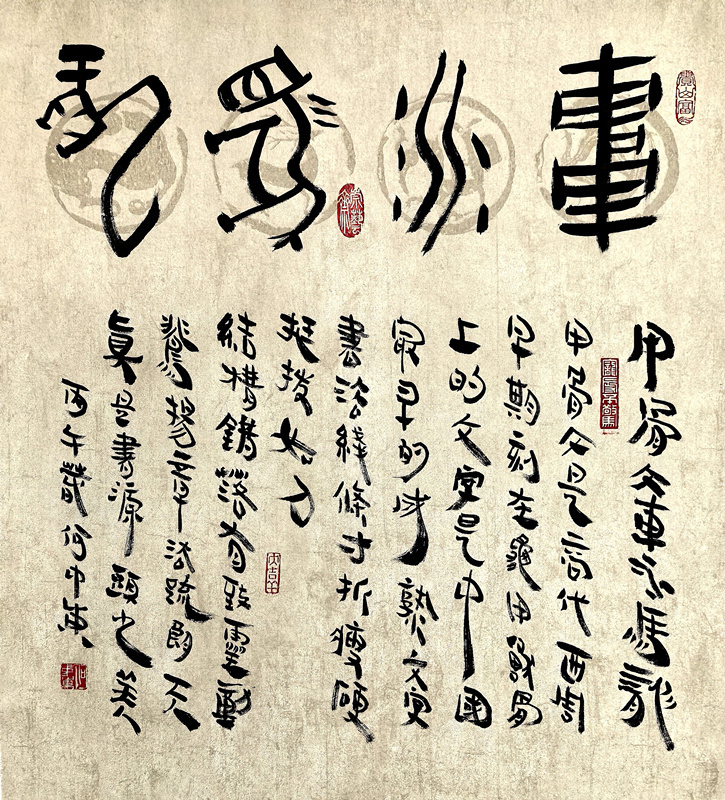 車水馬龍
甲骨文車水馬龍
甲骨文是商代西周
早期刻在龜甲獸骨
上的文字是中國
最早的成熟文字
書法綫條寸折瘦硬
挺拔如刀
結構錯落有致靈動
飛揚章法疏朗天
真是書源頭之美
丙午歲何中